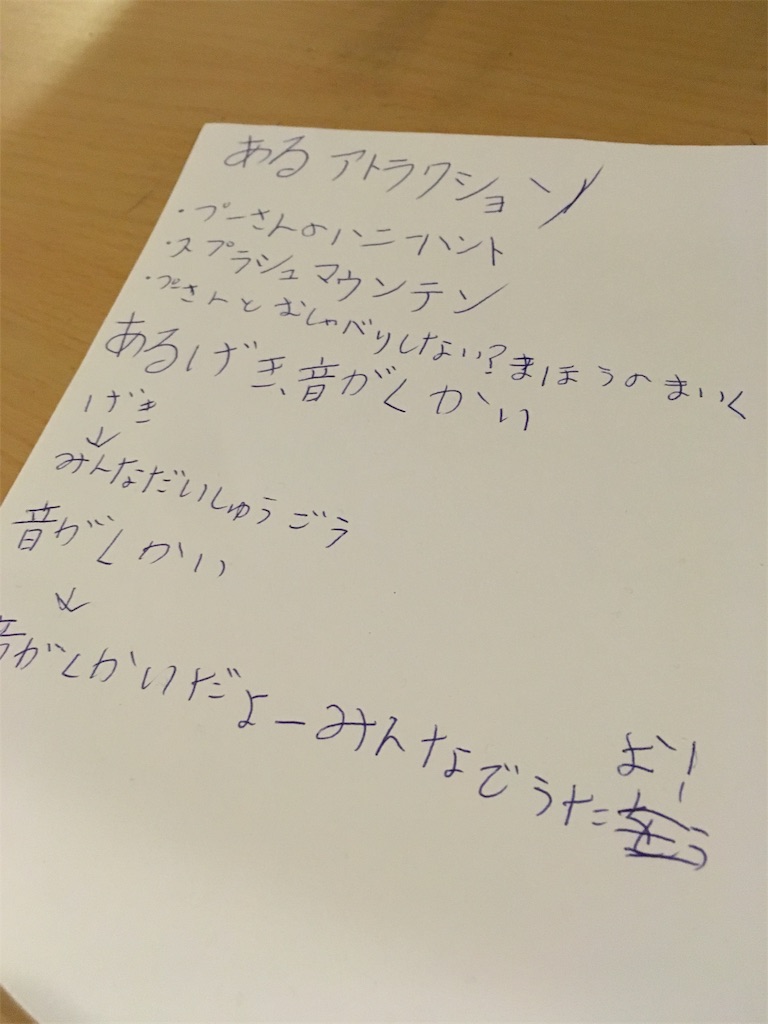 あるアトラクション
・プーさんのハニーハント
・スプラシュマウンテン
・プーさんとおしゃべりしない?まほうのまいく
あるげき、音がくかい
げき
↓
みんなだいしゅうごう
音がくかい
↓
音がくかいだよーみんなでうたおう!